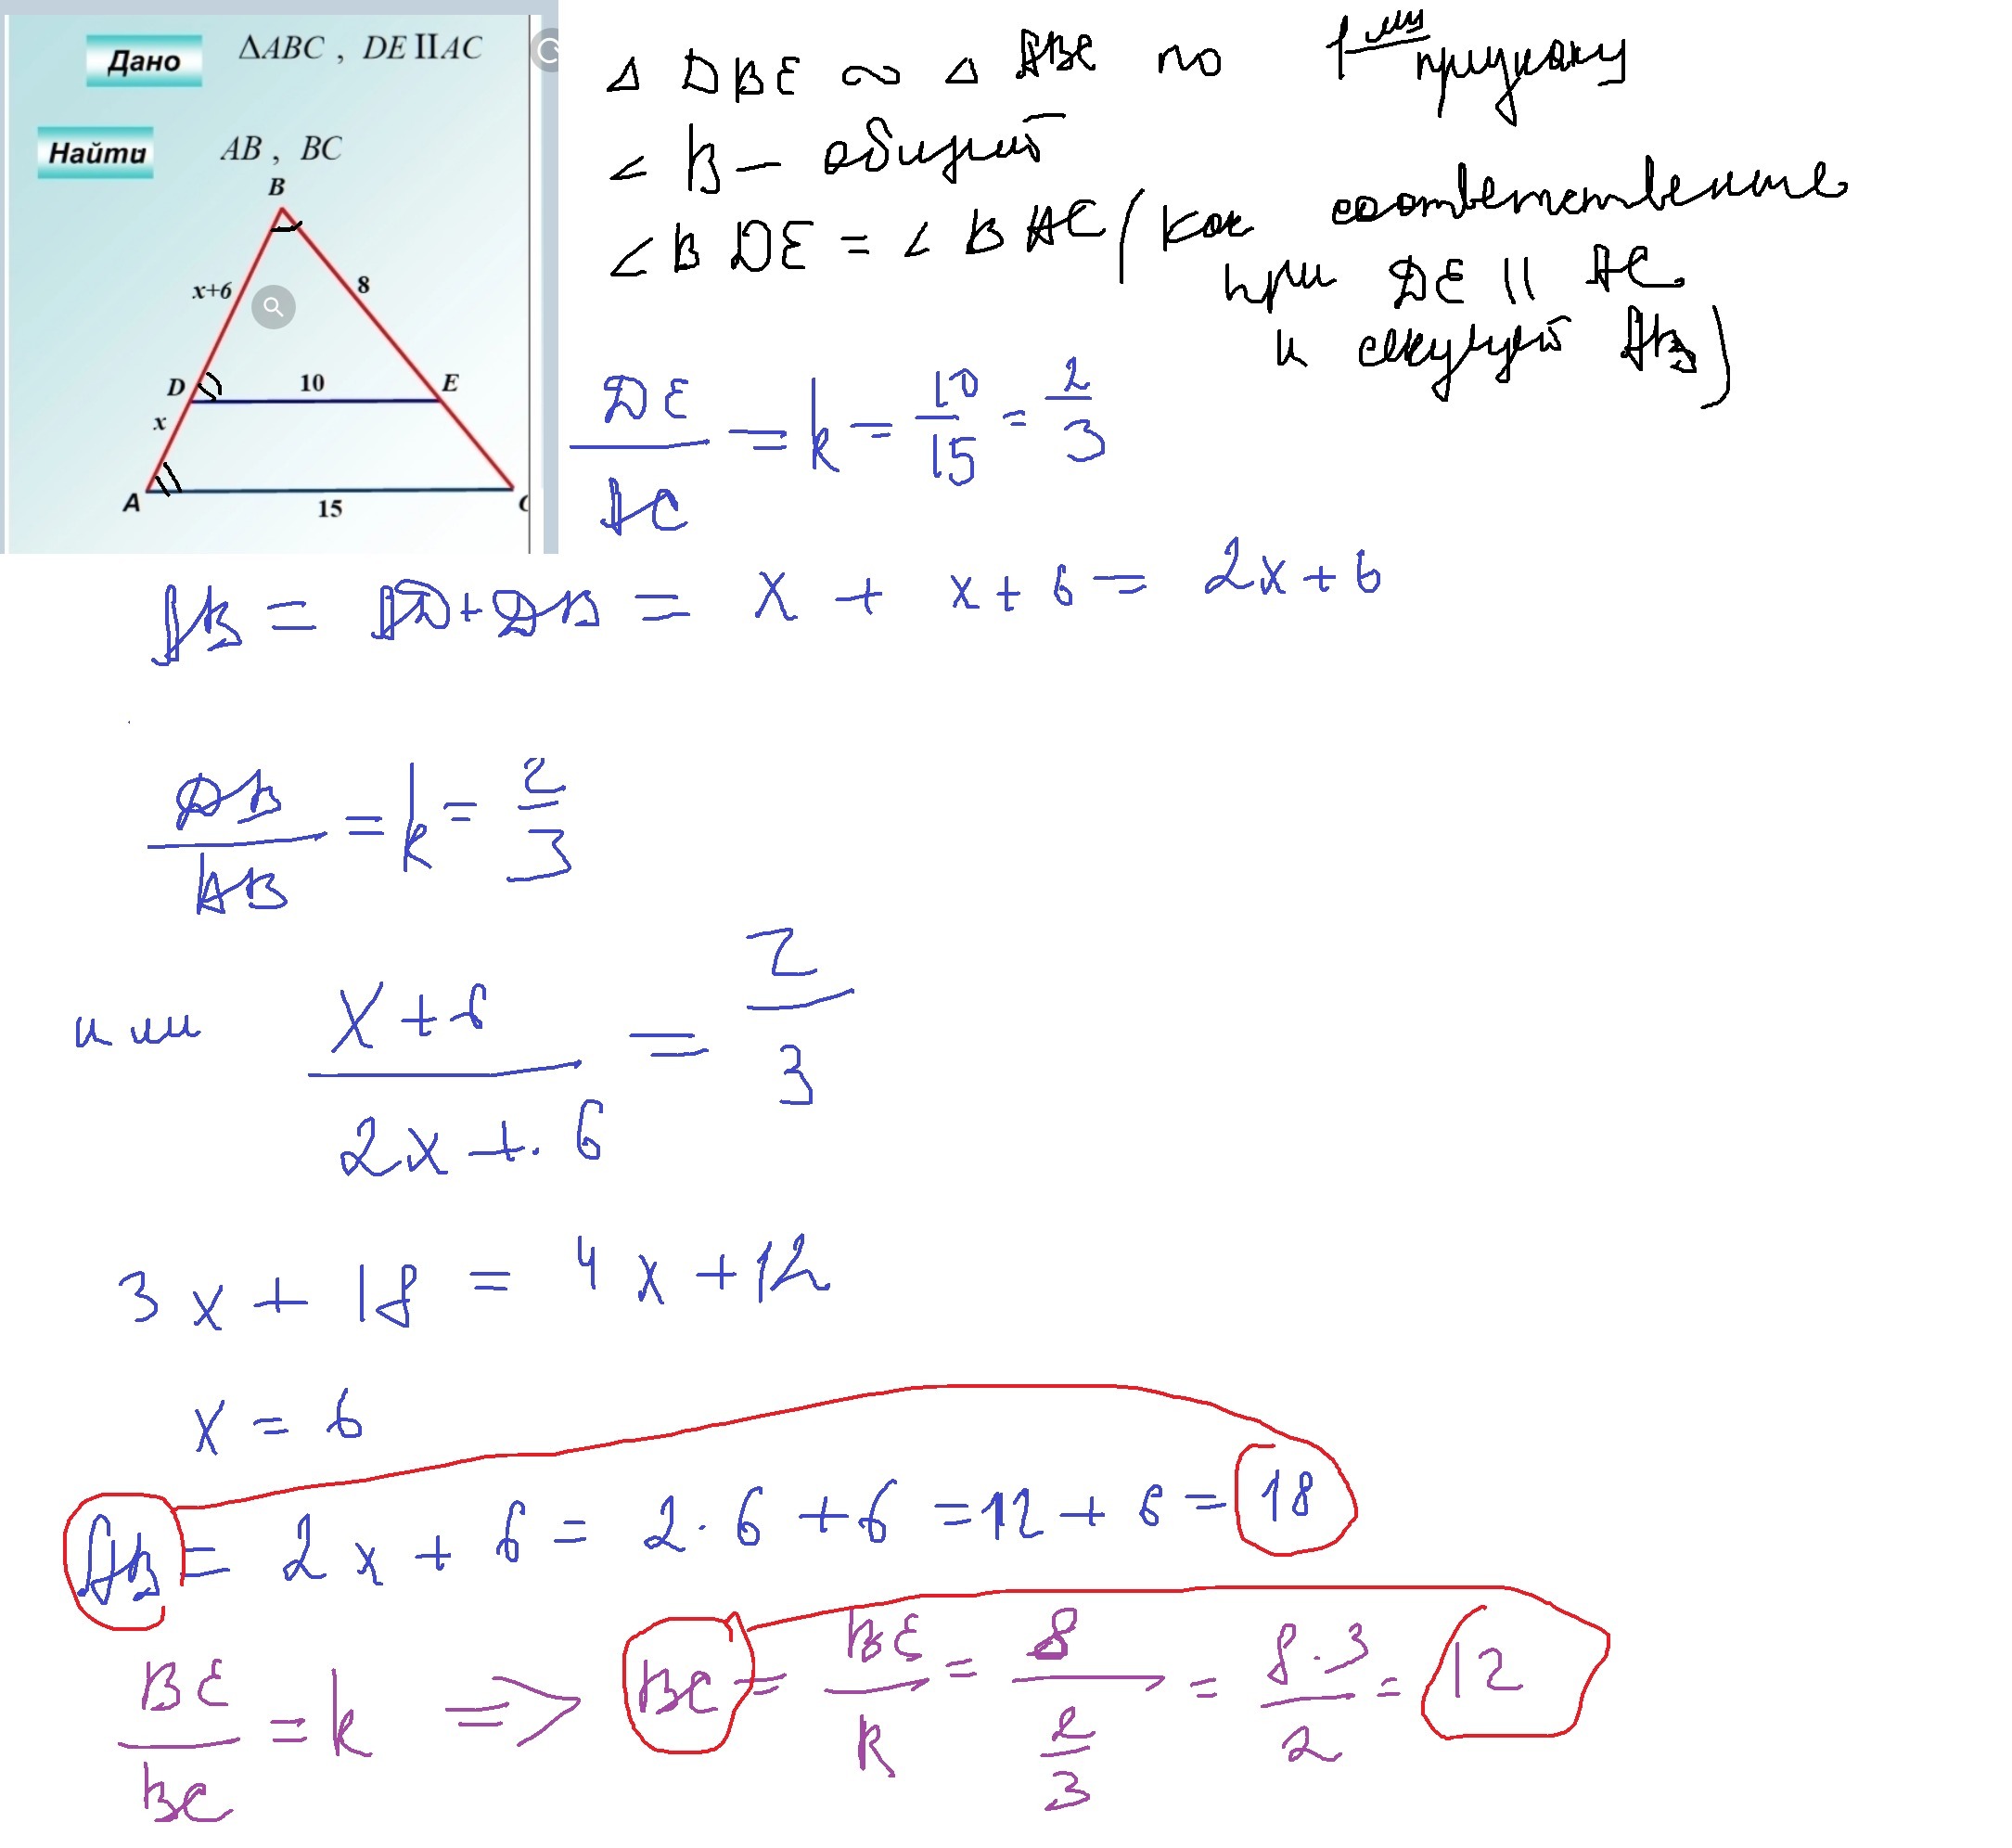 Дано ΔABC , DE II AC
Найти AB , BC
B
x+6
8
D
10
E
x
A
15
C
Δ DBE ∞ Δ ABC по 1му признаку
∠ B — общий
∠ BDE = ∠ BAC (как соответственные
при DE || AC
и секущей AB)
DE/AC = k = 10/15 = 2/3
AB = AD + DB = x + x + 6 = 2x + 6
DB/AB = k = 2/3
или (x + 6)/(2x + 6) = 2/3
3x + 18 = 4x + 12
x = 6
AB = 2x + 6 = 2 · 6 + 6 = 12 + 6 = 18
BE/BC = k => BC = BE/k = 8/(2/3) = 8·3/2 = 12